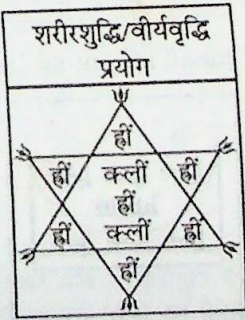 शरीरशुद्धि/वीर्यवृद्धि
प्रयोग
ह्रीं
ह्रीं क्लीं ह्रीं
ह्रीं
ह्रीं क्लीं ह्रीं
ह्रीं